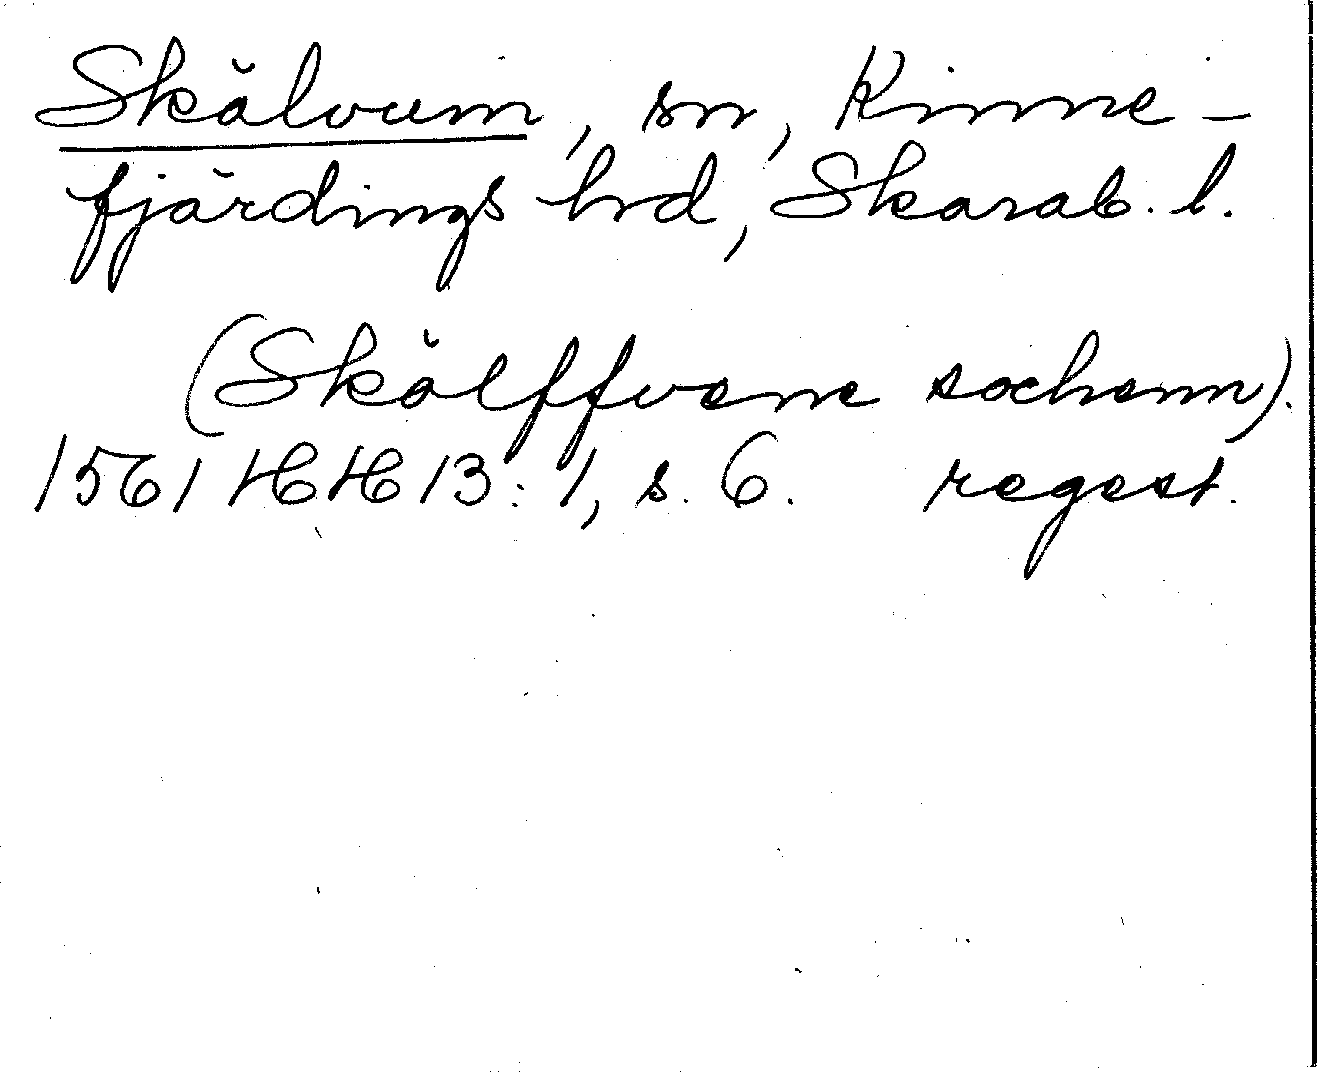 Skälvum, sn, Kinne-
fjärdings hrd, Skarab. l.
(Skälffvom sochenn).
1561 HH 13:1, s. 6. regest.